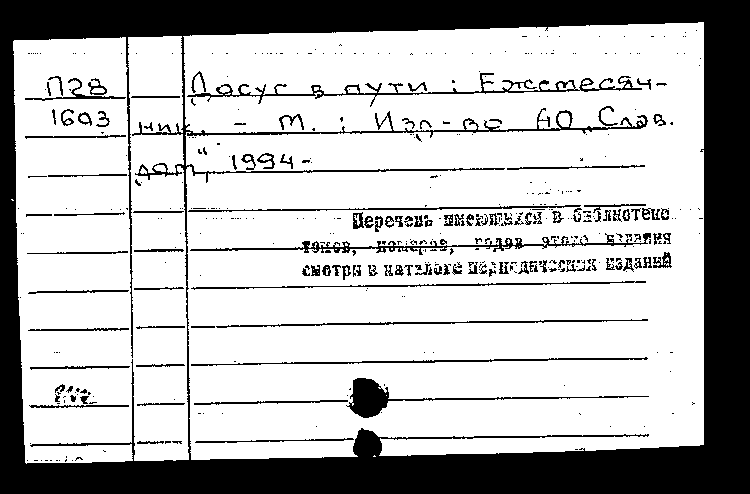 П28 Досуг в пути : Ежемесяч-
1603 ник. - М. : Изд-во АО „Слав.
дом", 1994-
Перечень имеющихся в библиотеке
томов, номеров, годов этого издания
смотри в каталоге периодических изданий